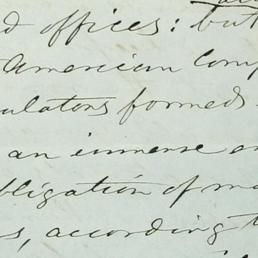 d offices: but
American Comp
ulators formed
an immense
bligation of m
s, according t